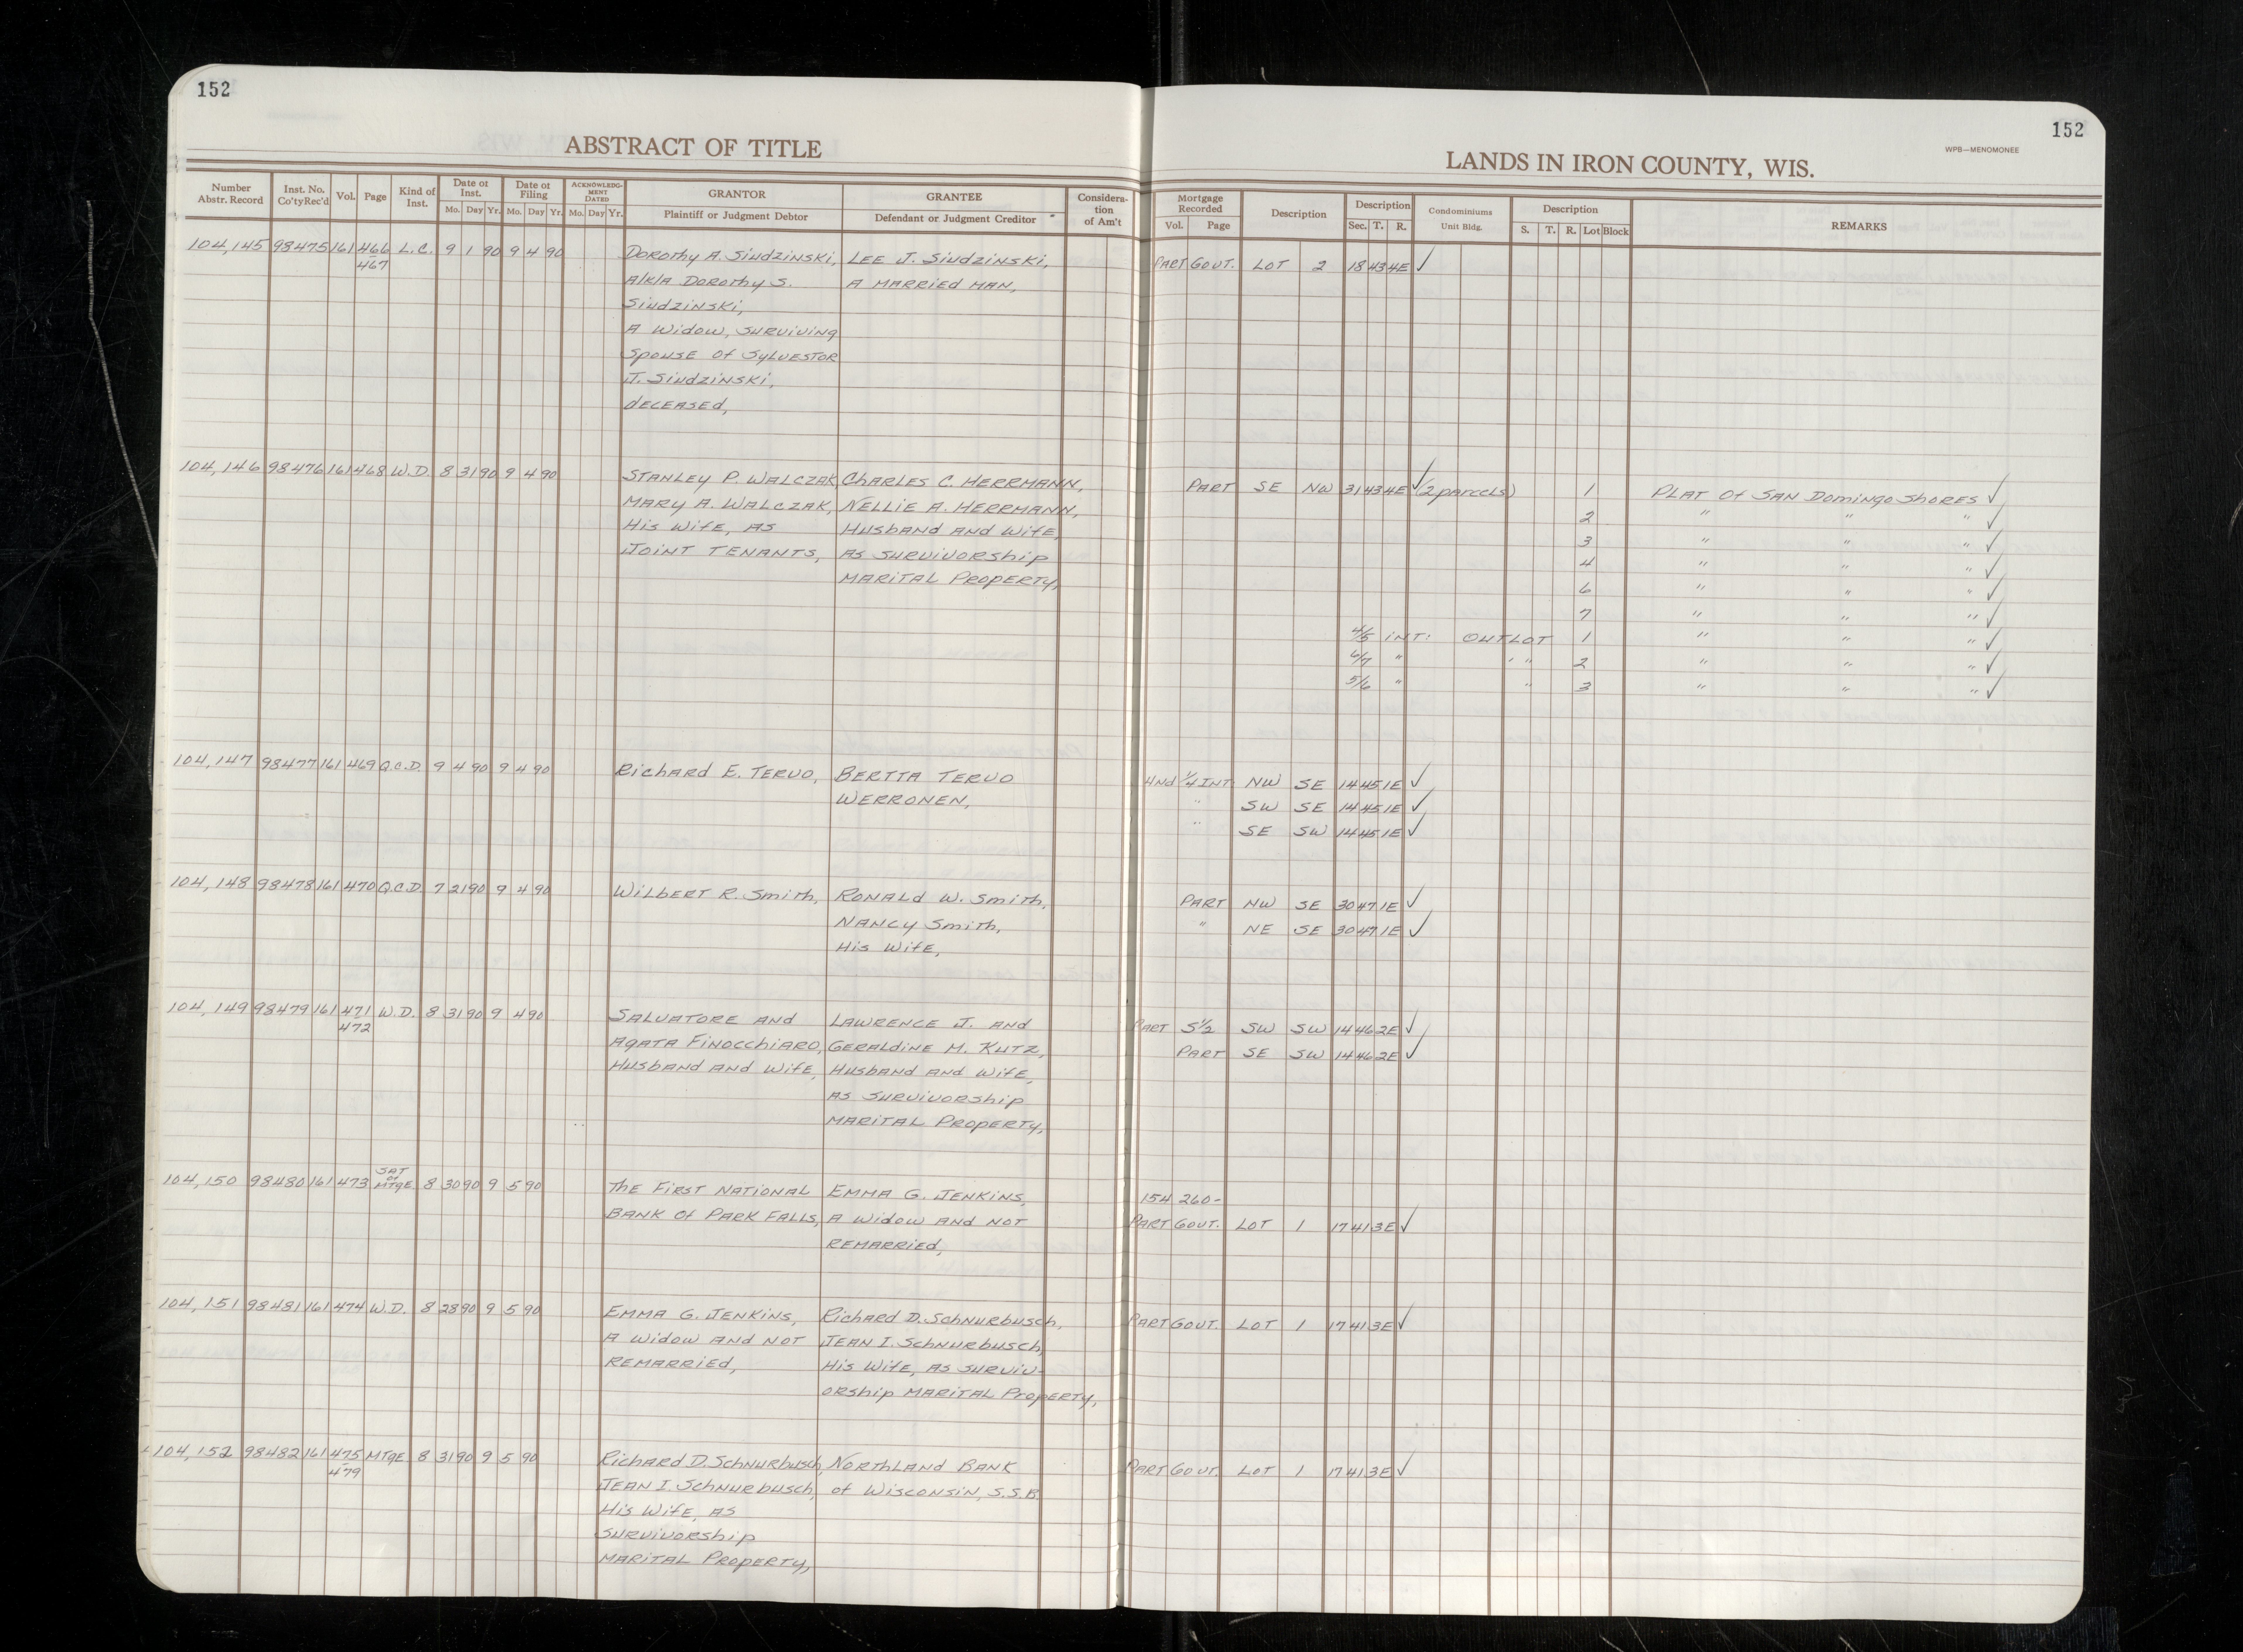 152
ABSTRACT OF TITLE
Number Abstr. Record
Inst. No. Co'ty Rec'd
Vol.
Page
Kind of Inst.
Date of Inst.
Mo. Day Yr.
Date of Filing
Mo. Day Yr.
ACKNOWLEDGMENT DATED
Mo. Day Yr.
GRANTOR
Plaintiff or Judgment Debtor
GRANTEE
Defendant or Judgment Creditor
Consideration of Am't
152
WPB—MENOMONEE
LANDS IN IRON COUNTY, WIS.
Mortgage Recorded
Vol. Page
Description
Description
Sec. T. R.
Condominiums
Unit Bldg.
Description
S. T. R. Lot Block
REMARKS
104,145 98475 161 466 L.C. 9 1 90 9 4 90 Dorothy A. Siudzinski, Lee J. Siudzinski, Part Govt. Lot 2 18 43 4E ✓
- 467 A/K/A Dorothy S. A Married Man,
Siudzinski,
A Widow, Surviving
Spouse of Sylvestor
J. Siudzinski,
deceased,
104,146 98476 161 468 W.D. 8 31 90 9 4 90 Stanley P. Walczak, Charles C. Herrmann, Part SE NW 31 43 4E ✓ (2 parcels) 1 Plat of San Domingo Shores ✓
Mary A. Walczak, Nellie A. Herrmann, 2 " " " ✓
His Wife, as Husband and Wife, 3 " " " ✓
Joint Tenants, as Survivorship 4 " " " ✓
Marital Property, 6 " " " ✓
7 " " " ✓
4/5 Int: Outlot 1 " " " ✓
6/7 " " " 2 " " " ✓
5/6 " " 3 " " " ✓
104,147 98477 161 469 Q.C.D. 9 4 90 9 4 90 Richard E. Tervo, Bertta Tervo Und 1/4 Int NW SE 14 45 1E ✓
Werronen, " SW SE 14 45 1E ✓
" SE SW 14 45 1E ✓
104,148 98478 161 470 Q.C.D. 7 21 90 9 4 90 Wilbert R. Smith, Ronald W. Smith, Part NW SE 30 47 1E ✓
Nancy Smith, " NE SE 30 47 1E ✓
His Wife,
104,149 98479 161 471 W.D. 8 31 90 9 4 90 Salvatore and Lawrence J. and Part S1/2 SW SW 14 46 2E ✓
472 Agata Finocchiaro, Geraldine M. Kutz, Part SE SW 14 46 2E ✓
Husband and Wife, Husband and Wife,
as Survivorship
Marital Property,
104,150 98480 161 473 Sat of Mtge 8 30 90 9 5 90 The First National Emma G. Jenkins, 154 260-
Bank of Park Falls, A Widow and not Part Govt. Lot 1 17 41 3E ✓
Remarried,
104,151 98481 161 474 W.D. 8 28 90 9 5 90 Emma G. Jenkins, Richard D. Schnurbusch, Part Govt. Lot 1 17 41 3E ✓
A Widow and not Jean I. Schnurbusch,
Remarried, His Wife, as Surviv-
orship Marital Property,
104,152 98482 161 475 Mtge 8 31 90 9 5 90 Richard D. Schnurbusch, Northland Bank Part Govt. Lot 1 17 41 3E ✓
- 479 Jean I. Schnurbusch, of Wisconsin, S.S.B.
His Wife, as
Survivorship
Marital Property,